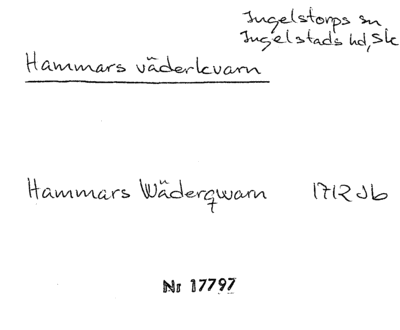 Ingelstorps sn
Ingelstads hd, Sk
Hammars väderkvarn
Hammars Wäderqwarn 1712 Jb
Nr 17797